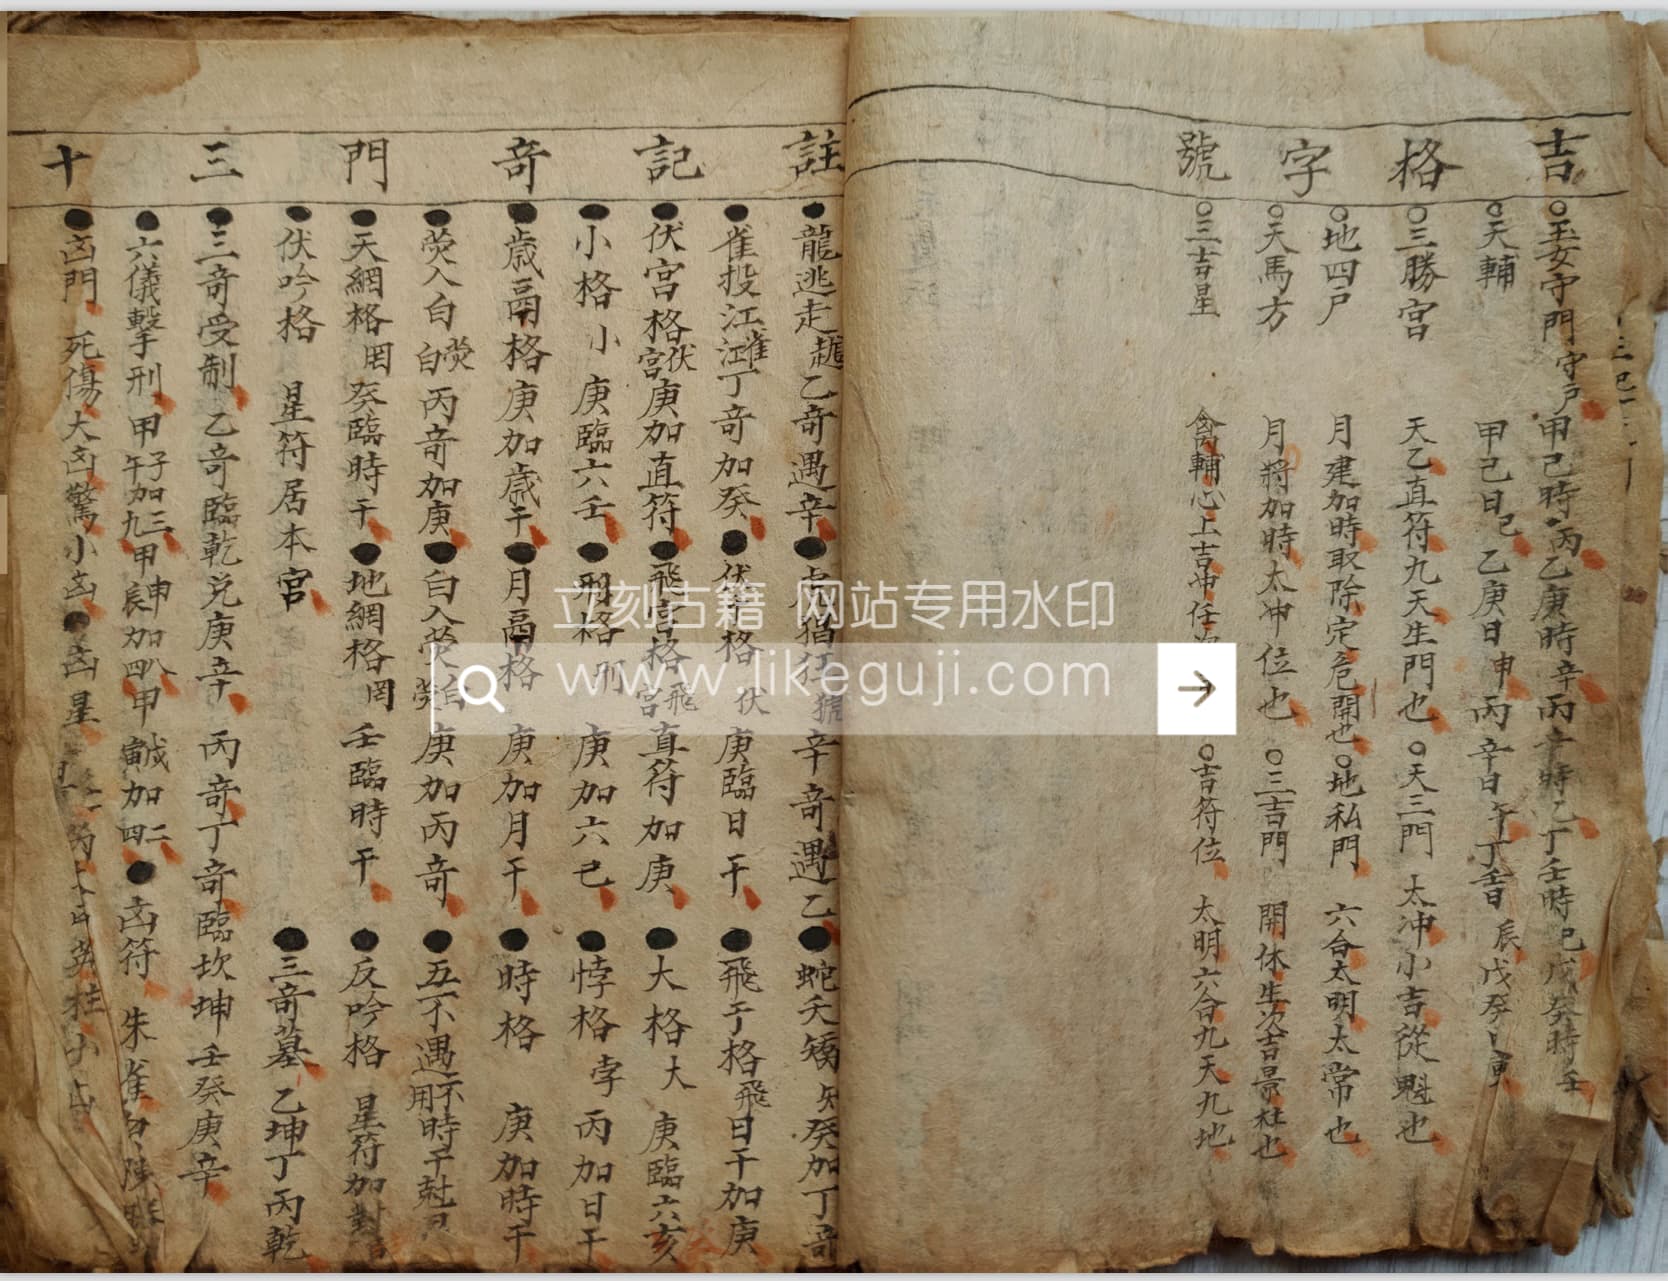 吉格字號
○玉女守門 守戶 甲己時丙乙庚時辛丙辛時乙丁壬時己戊癸時壬
○天輔 甲己日巳乙庚日申丙辛日午丁壬日辰戊癸日寅
○三勝宮 天乙直符九天生門也○天三門 太冲小吉從魁也
○地四户 月建加時取除定危開也○地私門 六合太明太常也
○天馬方 月將加時太冲位也○三吉門 開休生次吉景杜也
○三吉星 禽輔心上吉冲任次○吉符位 太明六合九天九地
註記竒門三十
●龍逃走 乙竒遇辛●虎猖狂 猖 辛竒遇乙●蛇夭矯 癸加丁竒
●雀投江 雀江 丁竒加癸●伏干格 伏 庚臨日干●飛干格 飛 日干加庚
●伏宮格 伏宮 庚加直符●飛宮格 飛宮 直符加庚●大格 大 庚臨六亥
●小格 小 庚臨六壬●刑格 刑 庚加六己●悖格 孛 丙加日干
●歲鬲格 庚加歲干●月鬲格 庚加月干●時格 庚加時干
●熒入白 熒白 丙竒加庚●白入熒 白熒 庚加丙竒●五不遇 不用 時干尅日
●天網格 罔 癸臨時干●地網格 罔 壬臨時干●反吟格 星符加對宮
●伏吟格 星符居本宮●三竒墓 乙坤丁丙乾
●三竒受制 乙竒臨乾兌庚辛 丙竒丁竒臨坎坤壬癸庚辛
●六儀擊刑 甲子午加三九甲申辰加八四甲寅戌加二四●凶符 朱雀勾陳
●凶門 死傷大凶驚小凶●凶星
立刻古籍 网站专用水印
www.likeguji.com